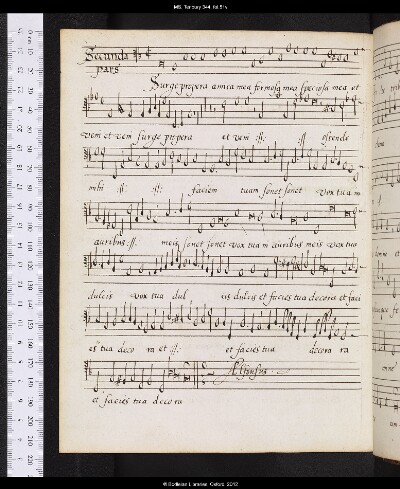 MS. Tenbury 344, fol. 51v
Secunda
pars
Surge propera amica mea formosa mea speciosa mea et
veni et veni surge propera et veni :||: :||: ostende
mihi :||: :||: faciem tuam sonet sonet vox tua m
auribus :||: meis sonet sonet vox tua m auribus meis vox tua
dulcis vox tua dul cis dulcis et facies tua decora et faci
es tua deco ra et :||: et facies tua decora ra
Alfonsus
et facies tua decora
© Bodleian Libraries, Oxford, 2012